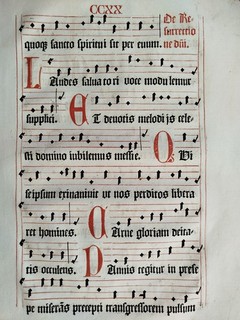 CCXX
De Re-
surrectio
ne dñi.
quoqz sancto spiritui sit per euum.
Laudes saluatori voce modulemur
supplici. Et deuotis melodijs cele-
sti domino iubilemus messie. Qui
seipsum exinaniuit ut nos perditos libera
ret homines. Carne gloriam deita-
tis occulens. Pannis tegitur in prese
pe miserãs precepti transgressorem pulsum